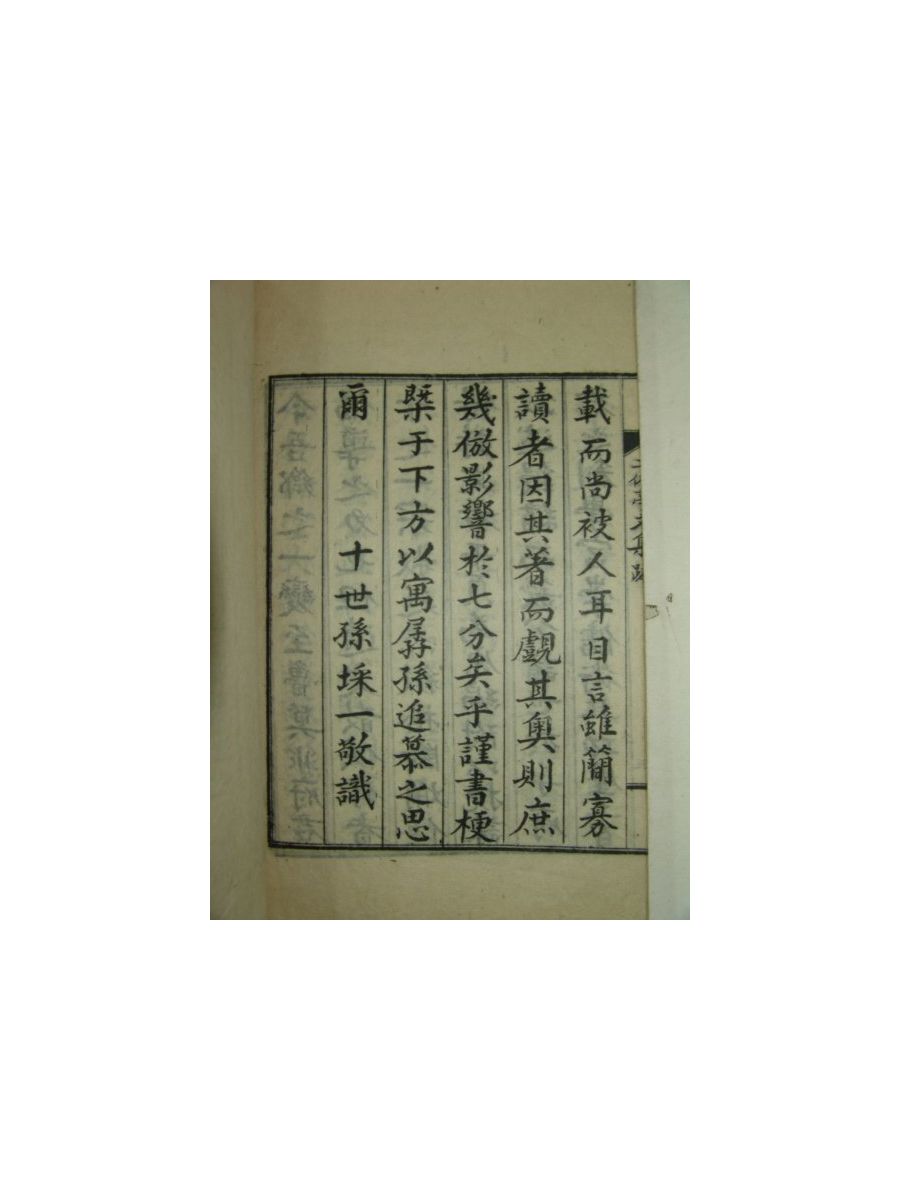 載而尚被人耳目言雖簡寡
讀者因其著而覰其奧則庶
幾倣影響於七分矣乎謹書梗
槩于下方以寓孱孫追慕之思
爾　十世孫埰一敬識